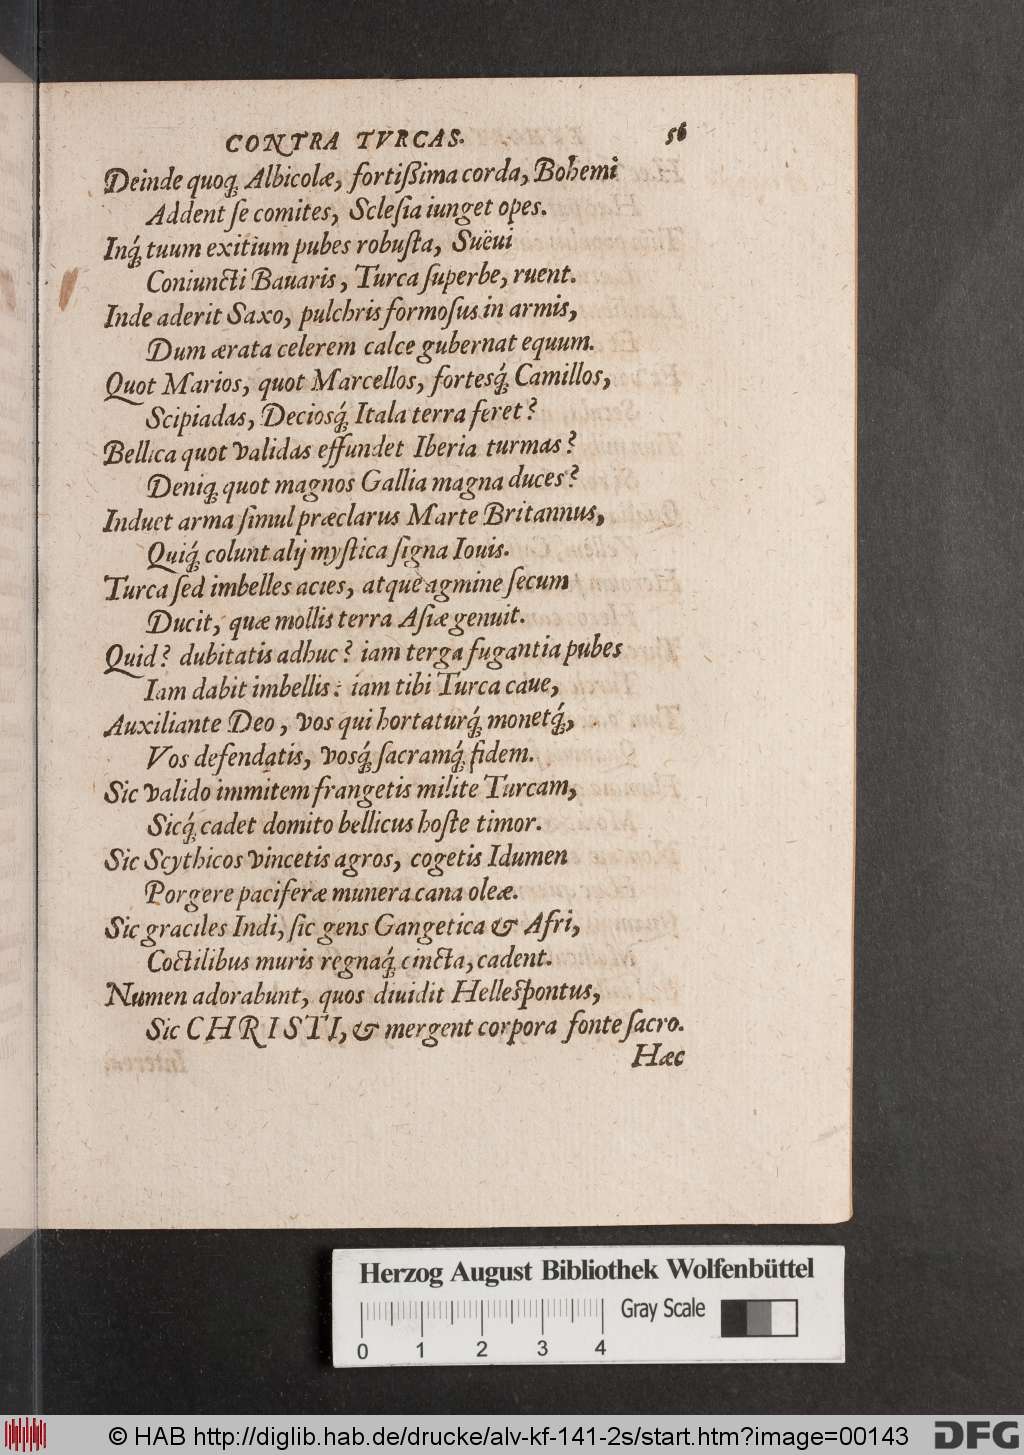 CONTRA TVRCAS. 56
Deinde quoq́ꝫ Albicolæ, fortißima corda, Bohemi
Addent ſe comites, Scleſia iunget opes.
Inq́ꝫ tuum exitium pubes robuſta, Suëui
Coniuncti Bauaris, Turca ſuperbe, ruent.
Inde aderit Saxo, pulchris formoſus in armis,
Dum ærata celerem calce gubernat equum.
Quot Marios, quot Marcellos, fortesq́ꝫ Camillos,
Scipiadas, Deciosq́ꝫ Itala terra feret?
Bellica quot validas effundet Iberia turmas?
Deniqꝫ quot magnos Gallia magna duces?
Induet arma ſimul præclarus Marte Britannus,
Quiq́ꝫ colunt alij myſtica ſigna Iouis.
Turca ſed imbelles acies, atque agmine ſecum
Ducit, quæ mollis terra Aſiæ genuit.
Quid? dubitatis adhuc? iam terga fugantia pubes
Iam dabit imbellis: iam tibi Turca caue,
Auxiliante Deo, vos qui hortaturq́ꝫ monetq́ꝫ,
Vos defendatis, vosq́ꝫ ſacramq́ꝫ fidem.
Sic valido immitem frangetis milite Turcam,
Sicq́ꝫ cadet domito bellicus hoſte timor.
Sic Scythicos vincetis agros, cogetis Idumen
Porgere paciferæ munera cana oleæ.
Sic graciles Indi, ſic gens Gangetica & Afri,
Coctilibus muris regnaq́ꝫ cincta, cadent.
Numen adorabunt, quos diuidit Helleſpontus,
Sic CHRISTI, & mergent corpora fonte ſacro.
Hæc
Herzog August Bibliothek Wolfenbüttel
Gray Scale
0 1 2 3 4
© HAB http://diglib.hab.de/drucke/alv-kf-141-2s/start.htm?image=00143
DFG